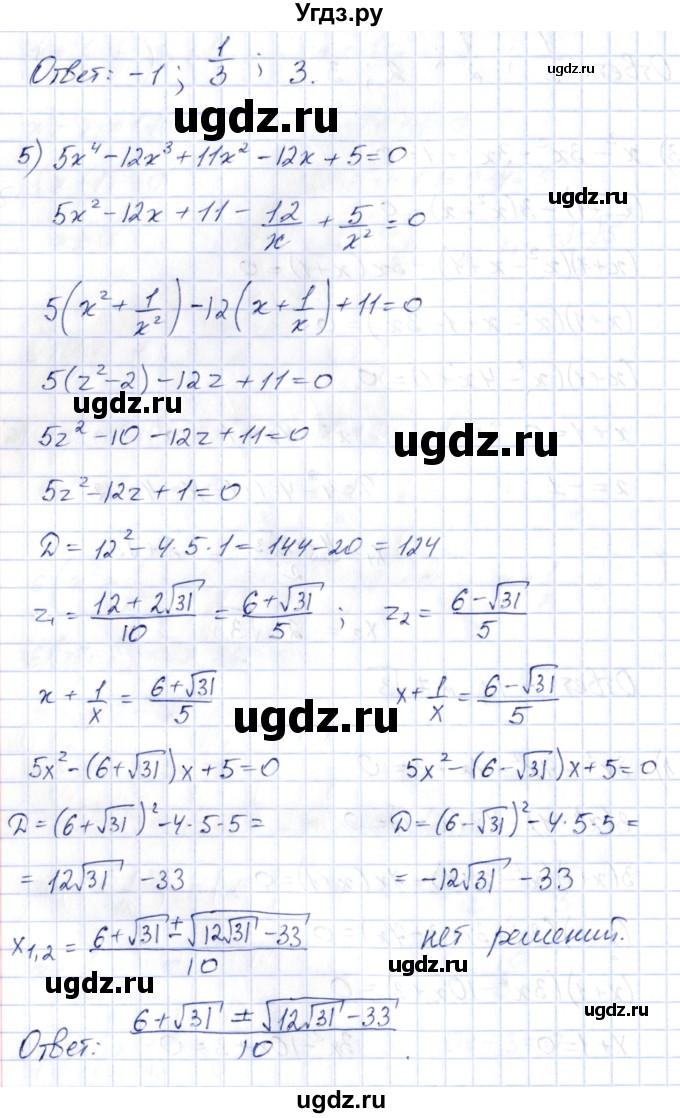 Угдз.ру
Ответ: -1; 1/3; 3.
ugdz.ru
ugdz.ru
5) 5x⁴ - 12x³ + 11x² - 12x + 5 = 0
5x² - 12x + 11 - 12/x + 5/x² = 0
ugdz.ru
5(x² + 1/x²) - 12(x + 1/x) + 11 = 0
5(z² - 2) - 12z + 11 = 0
ugdz.ru
5z² - 10 - 12z + 11 = 0
ugdz.ru
5z² - 12z + 1 = 0
D = 12² - 4·5·1 = 144 - 20 = 124
z₁ = (12 + 2√31)/10 = (6 + √31)/5; z₂ = (6 - √31)/5
x + 1/x = (6 + √31)/5 x + 1/x = (6 - √31)/5
ugdz.ru
5x² - (6 + √31)x + 5 = 0 5x² - (6 - √31)x + 5 = 0
ugdz.ru
ugdz.ru
D = (6 + √31)² - 4·5·5 = D = (6 - √31)² - 4·5·5 =
= 12√31 - 33 = -12√31 - 33
x₁,₂ = (6 + √31 ± √(12√31 - 33))/10 нет решений.
ugdz.ru
ugdz.ru
Ответ: (6 + √31 ± √(12√31 - 33))/10.
ugdz.ru